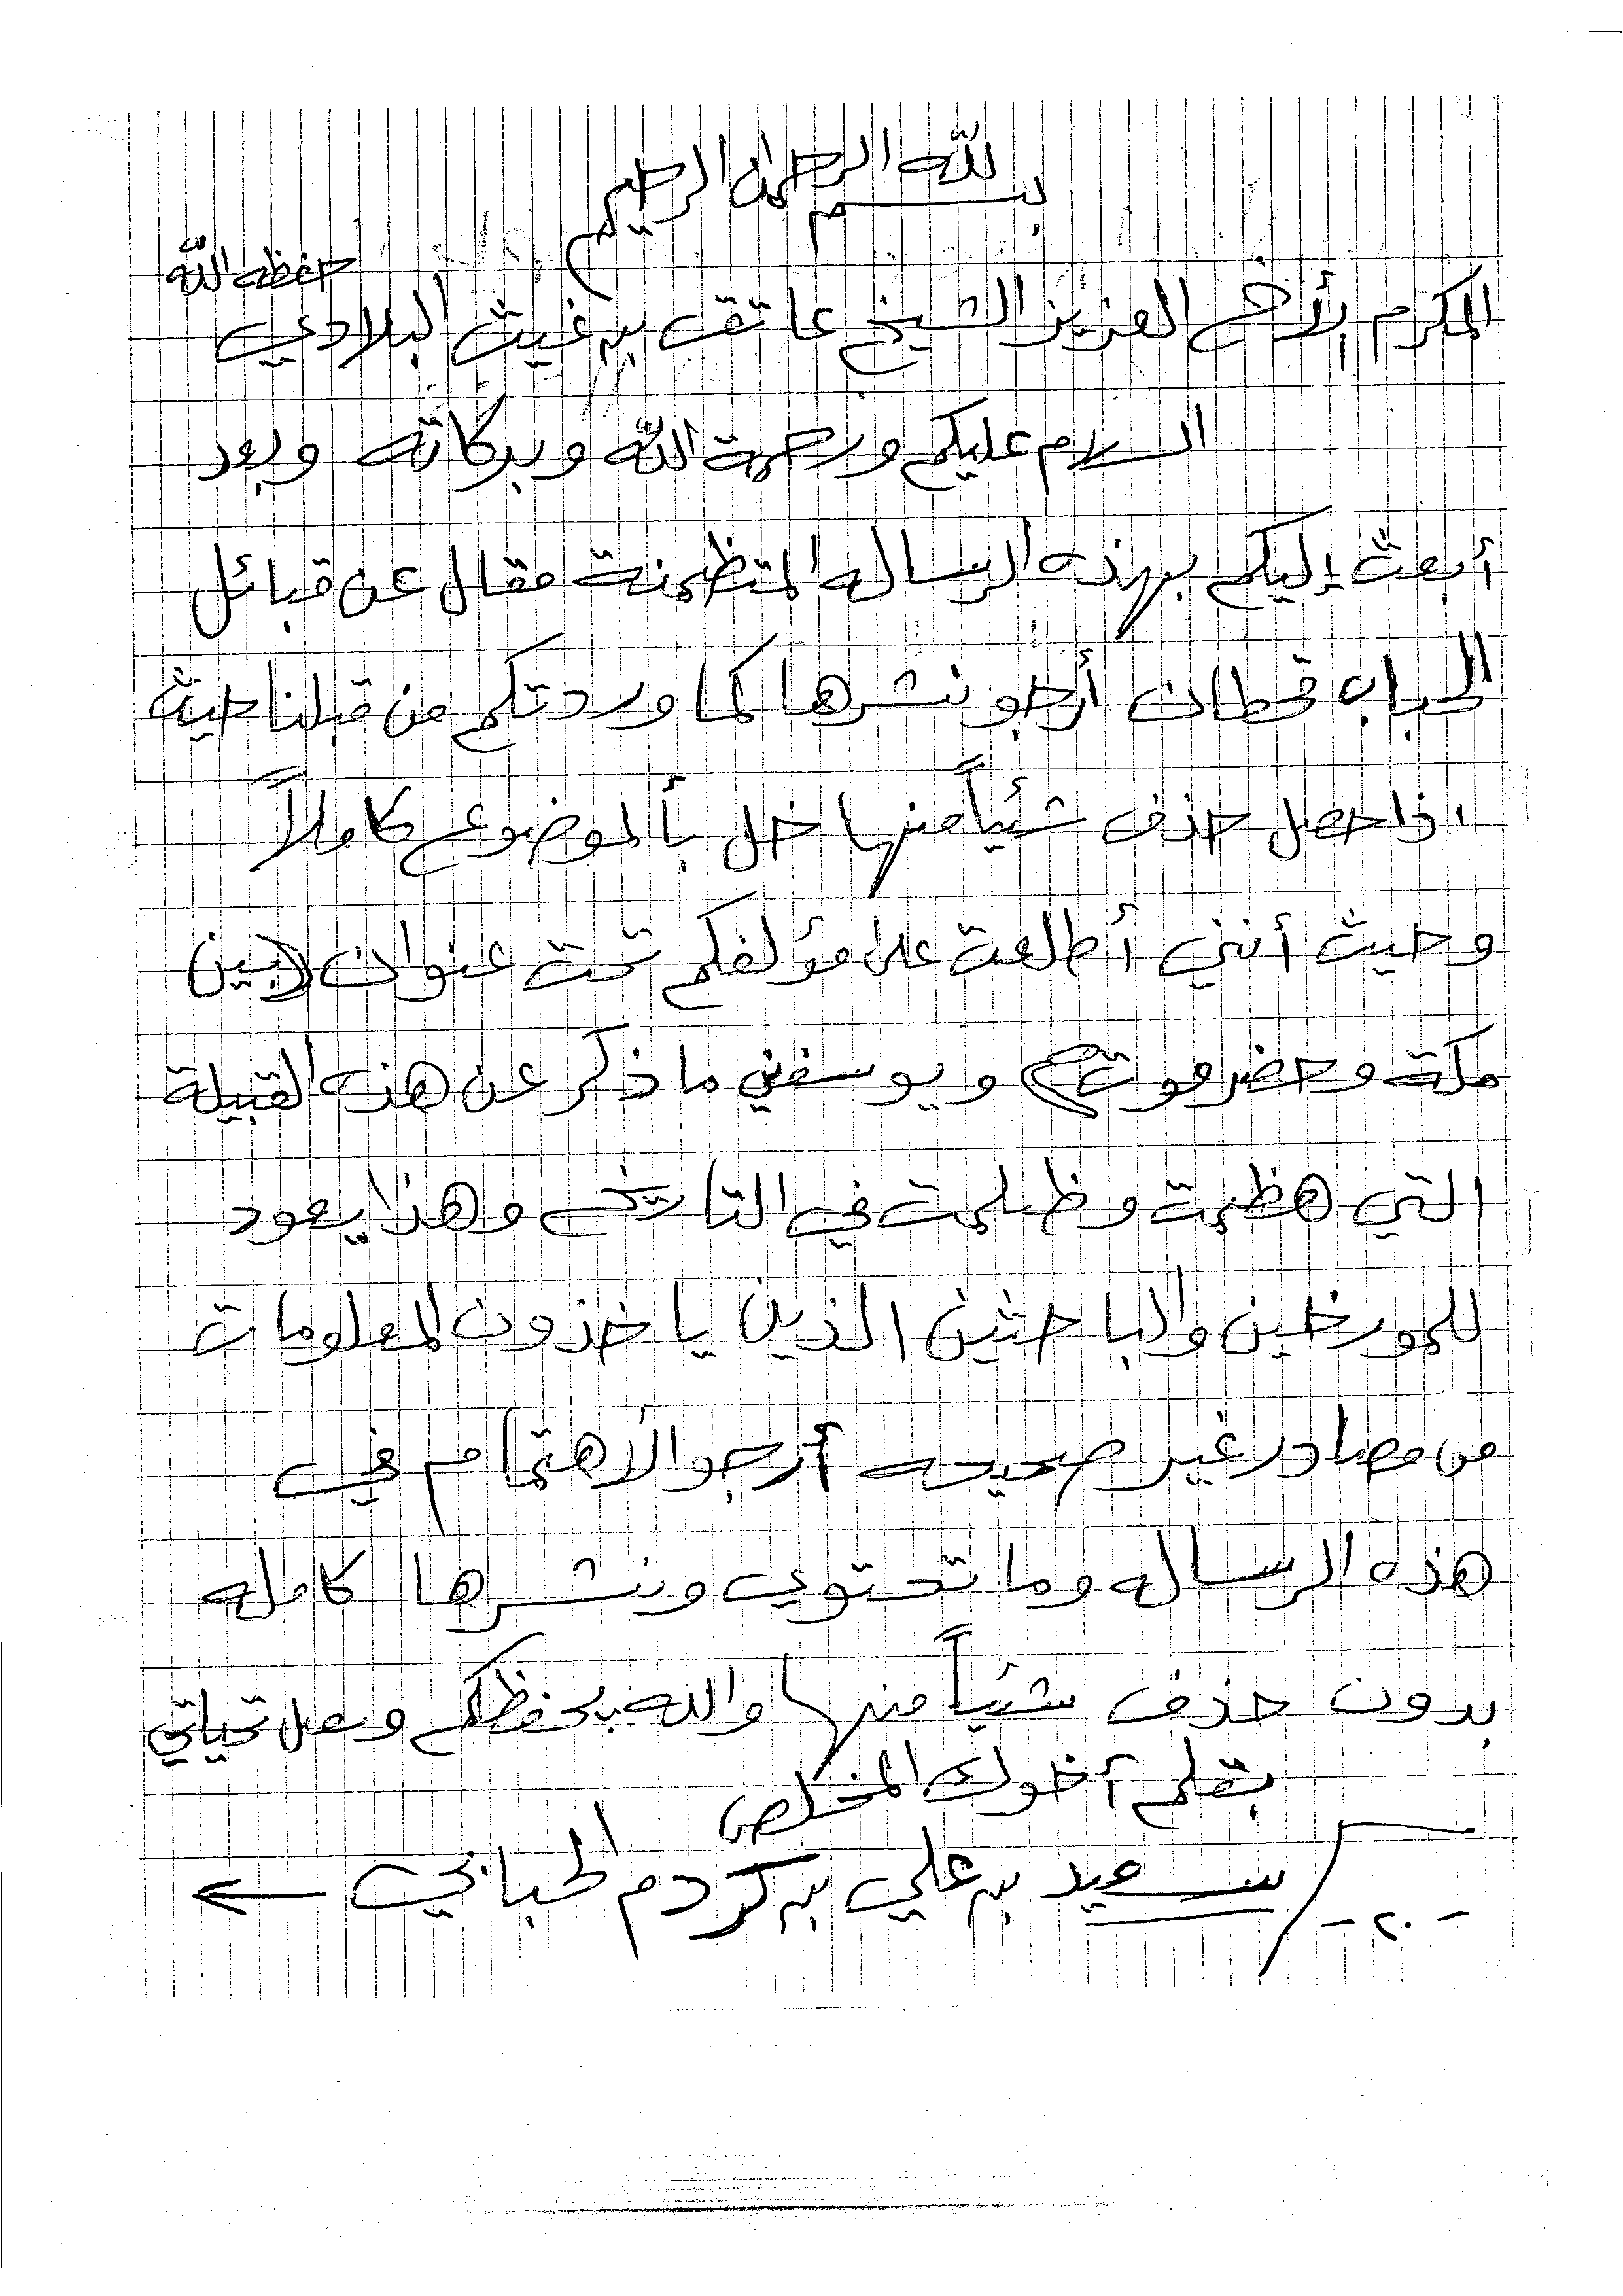 بسم الله الرحمن الرحيم
المكرم الأخ العزيز الشيخ عاتق بن غيث البلادي حفظه الله
السلام عليكم ورحمة الله وبركاته وبعد
أبعث إليكم بهذه الرساله المتظمنة مقال عن قبائل
الحباب قحطان أرجو نشرها كما وردتكم من قبلنا حيث
اذا حصل حذف شئياً منها خل بألموضوع كاملاً
وحيث أنني أطلعت على مؤلفكم تحت عنوان (بين
مكة وحضرموت) ويوسفني ما ذكر عن هذه القبيلة
التي هظمت وظلمت في التاريخ وهذا يعود
للمورخين والباحثين الذين ياخذون المعلومات
من مصادر غير صحيحه أرجو الأهتمام في
هذه الرساله وما تحتوي ونشرها كامله
بدون حذف شئياً منها والله يحفظكم وصل تحياتي
بقلم أخوك المخلص
سعيد بن علي بن كردم الحبابي ←
-٢٠-